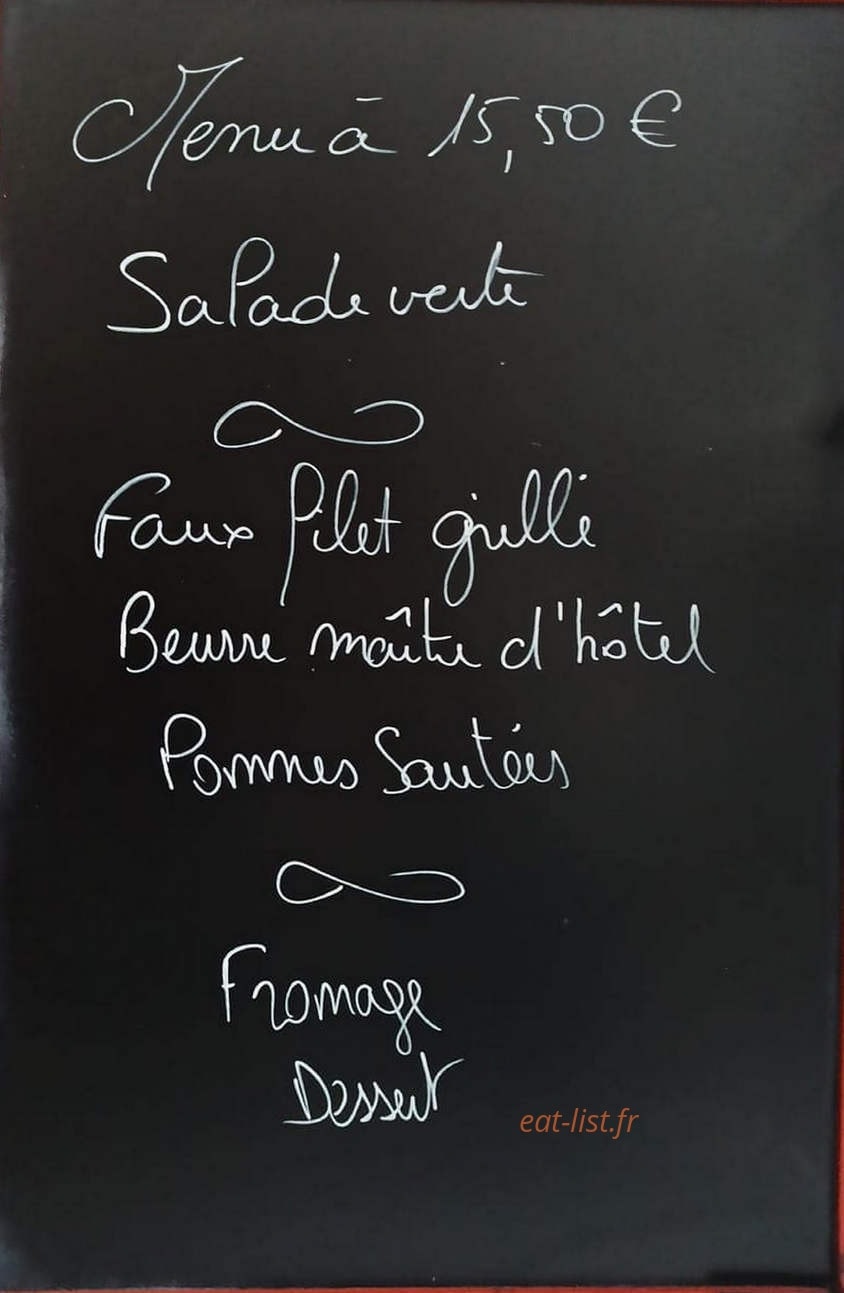 Menu à 15,50 €
Salade verte
Faux filet grillé
Beurre maître d'hôtel
Pommes Sautées
Fromage
Dessert
eat-list.fr